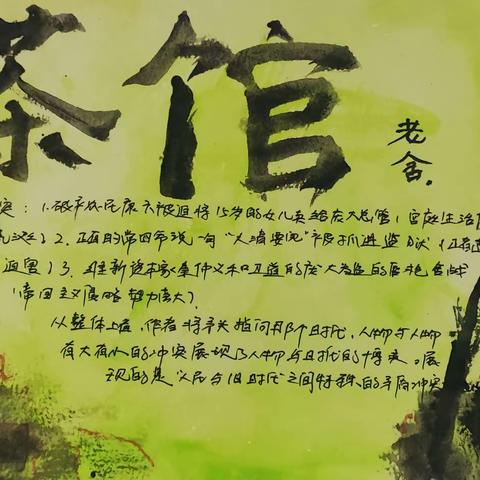 茶馆
老舍.
突：1.破产农民康六被迫将15岁的女儿卖给庞太总管；宫庭生活
乱) 2.正直的常四爷说一句“大清要完”被抓进监狱(正直
迫害) 3.维新资本家秦仲义和卫道的庞太监的唇枪舌战
(帝国主义侵略势力扩大).
从整体上看，作者将矛头指向那个时代，人物与人物
有大有小的冲突展现了人物与时代的博弈。展
现的是人民与旧时代之间特殊的矛盾冲突